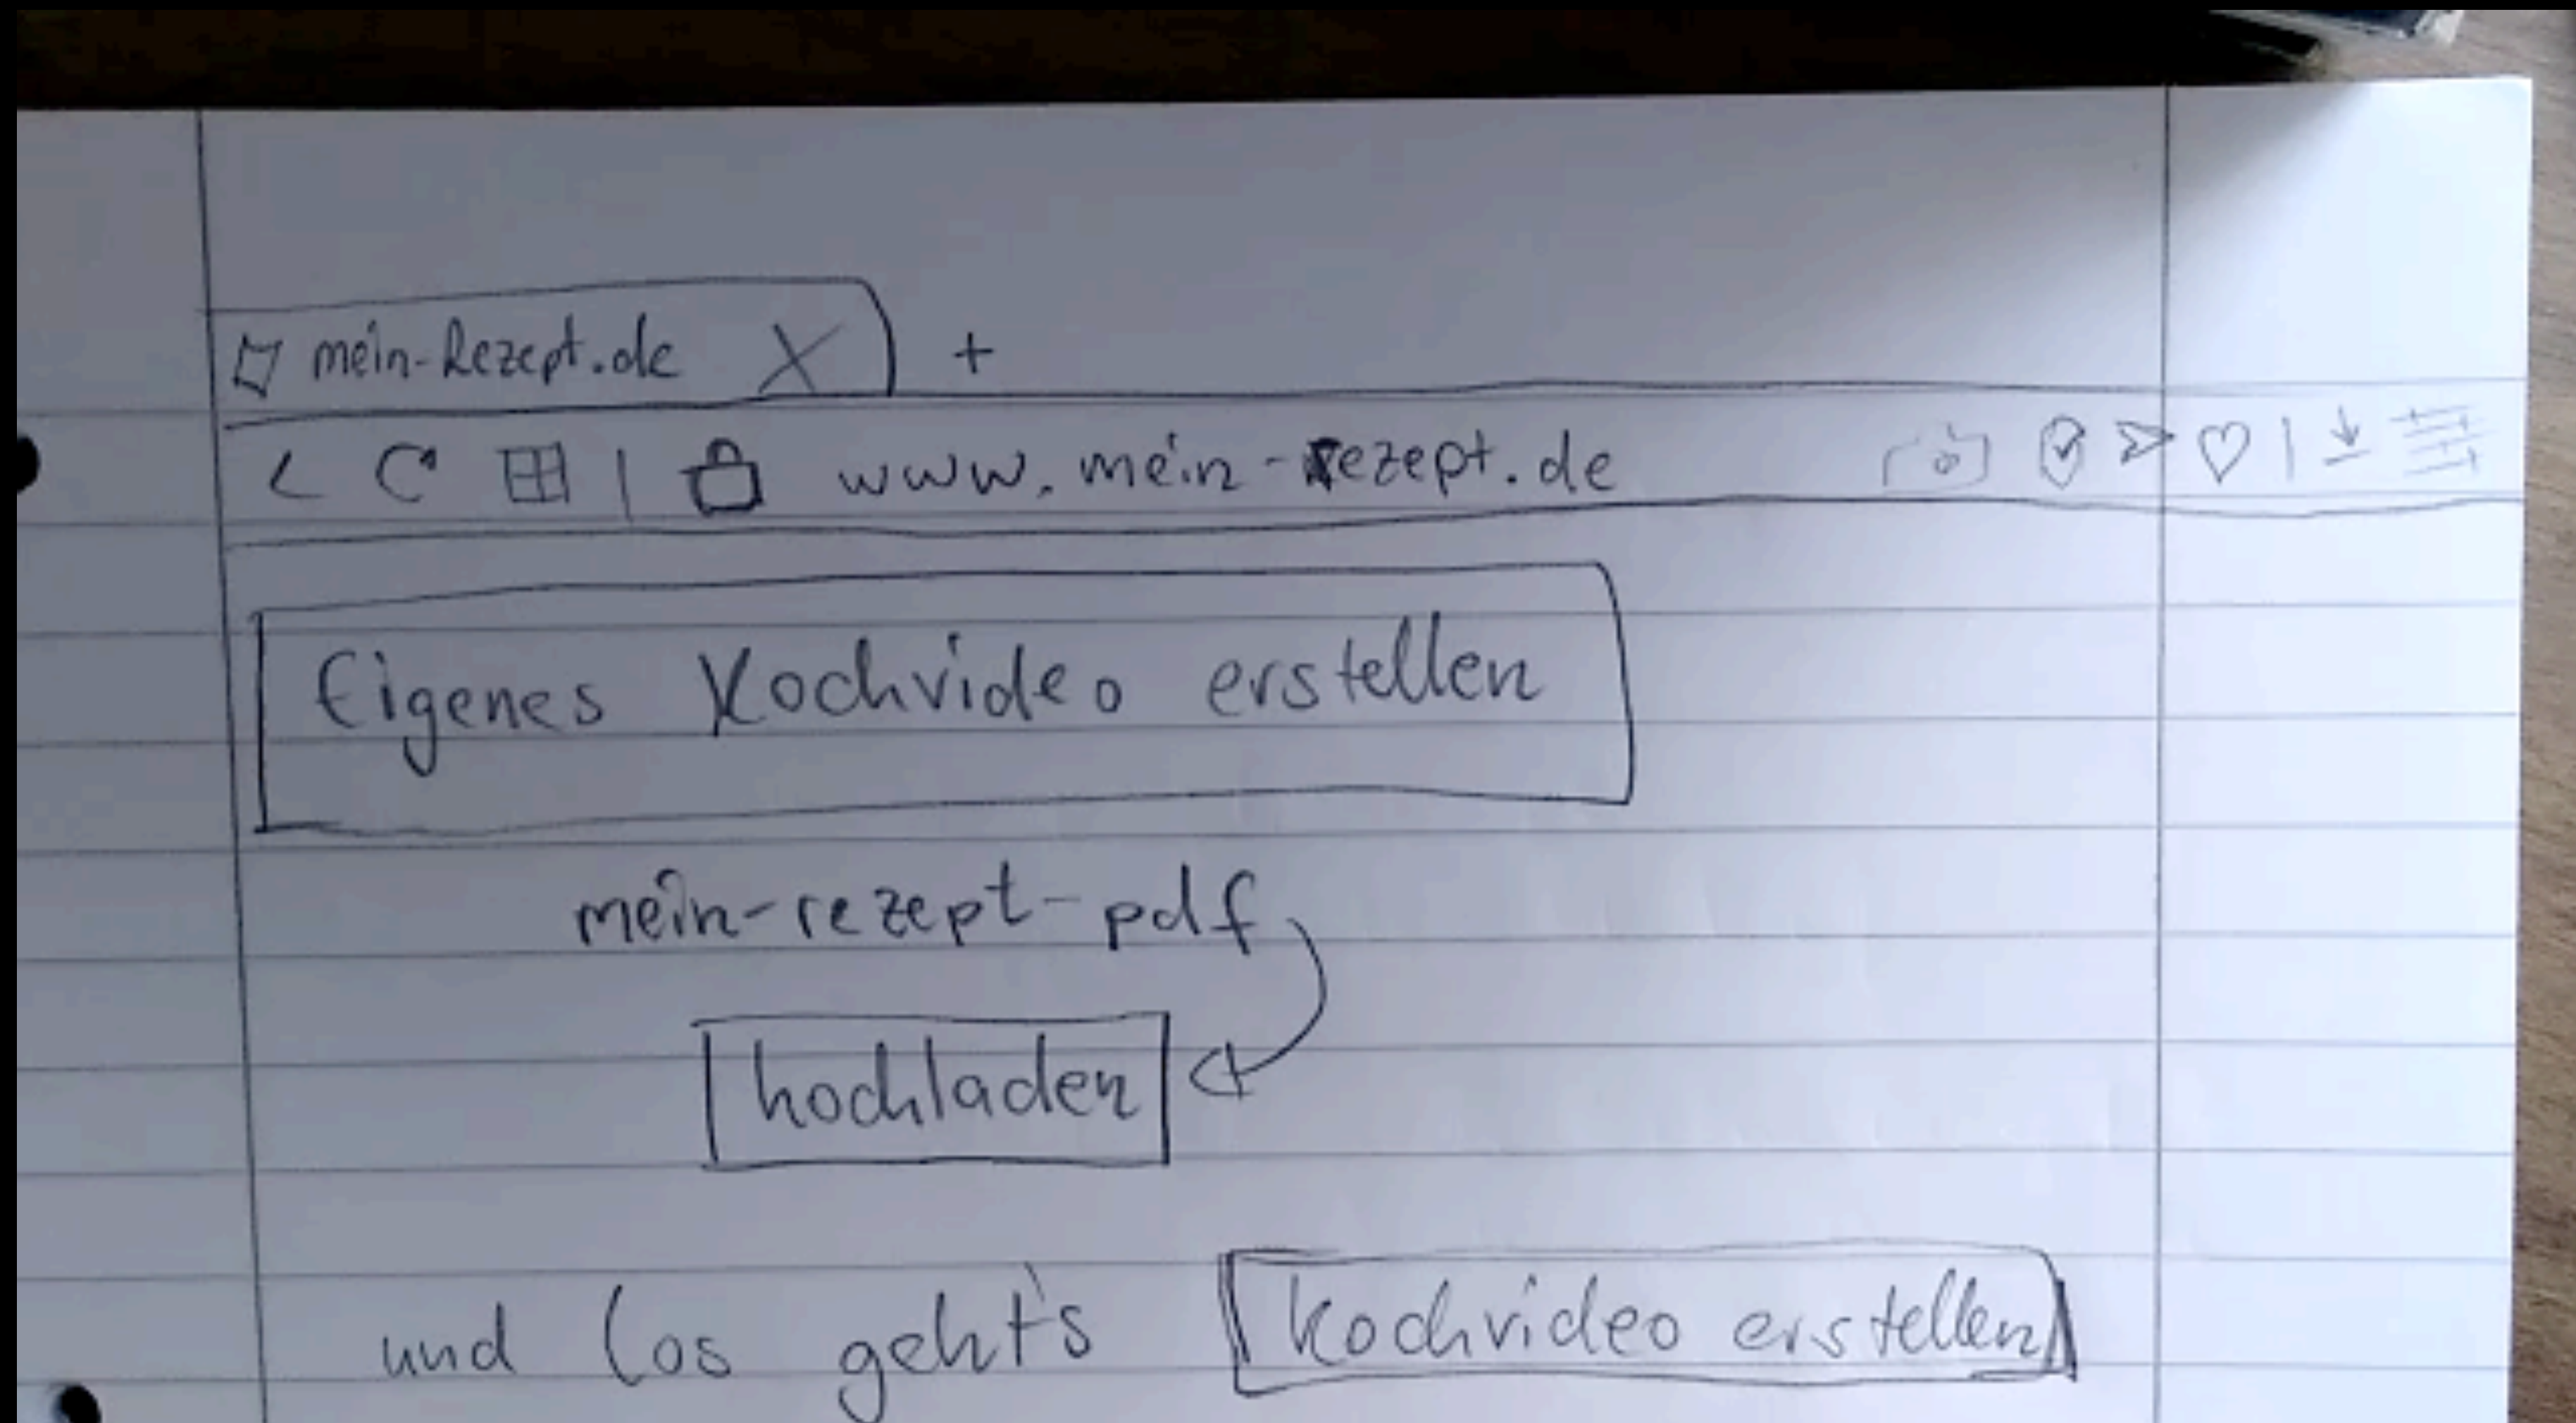 mein-Rezept.de X +
www.mein-rezept.de
Eigenes Kochvideo erstellen
mein-rezept-pdf
hochladen
und los geht's Kochvideo erstellen